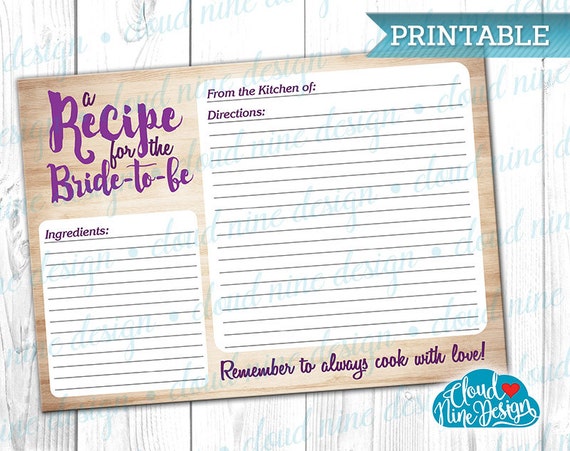 PRINTABLE
a
Recipe
for the
Bride-to-be
Ingredients:
From the Kitchen of:
Directions:
Remember to always cook with love!
Cloud
Nine Design
cloud nine design • cloud nine design